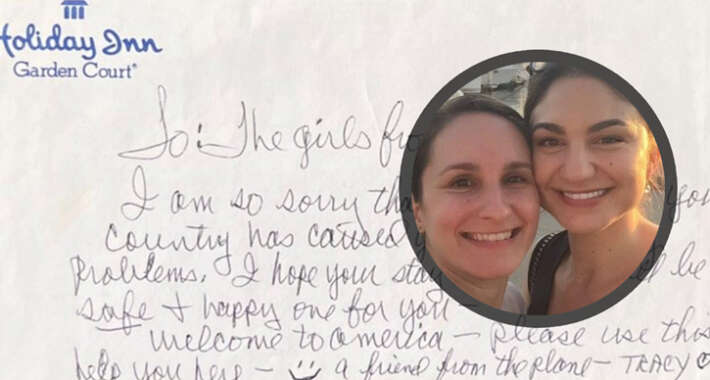 Holiday Inn
Garden Court®
To: The girls fro
I am so sorry tha you
country has caused y
problems. I hope your stay ll be
safe + happy one for you –
welcome to america – please use this
help you here – a friend from the plane – TRACY